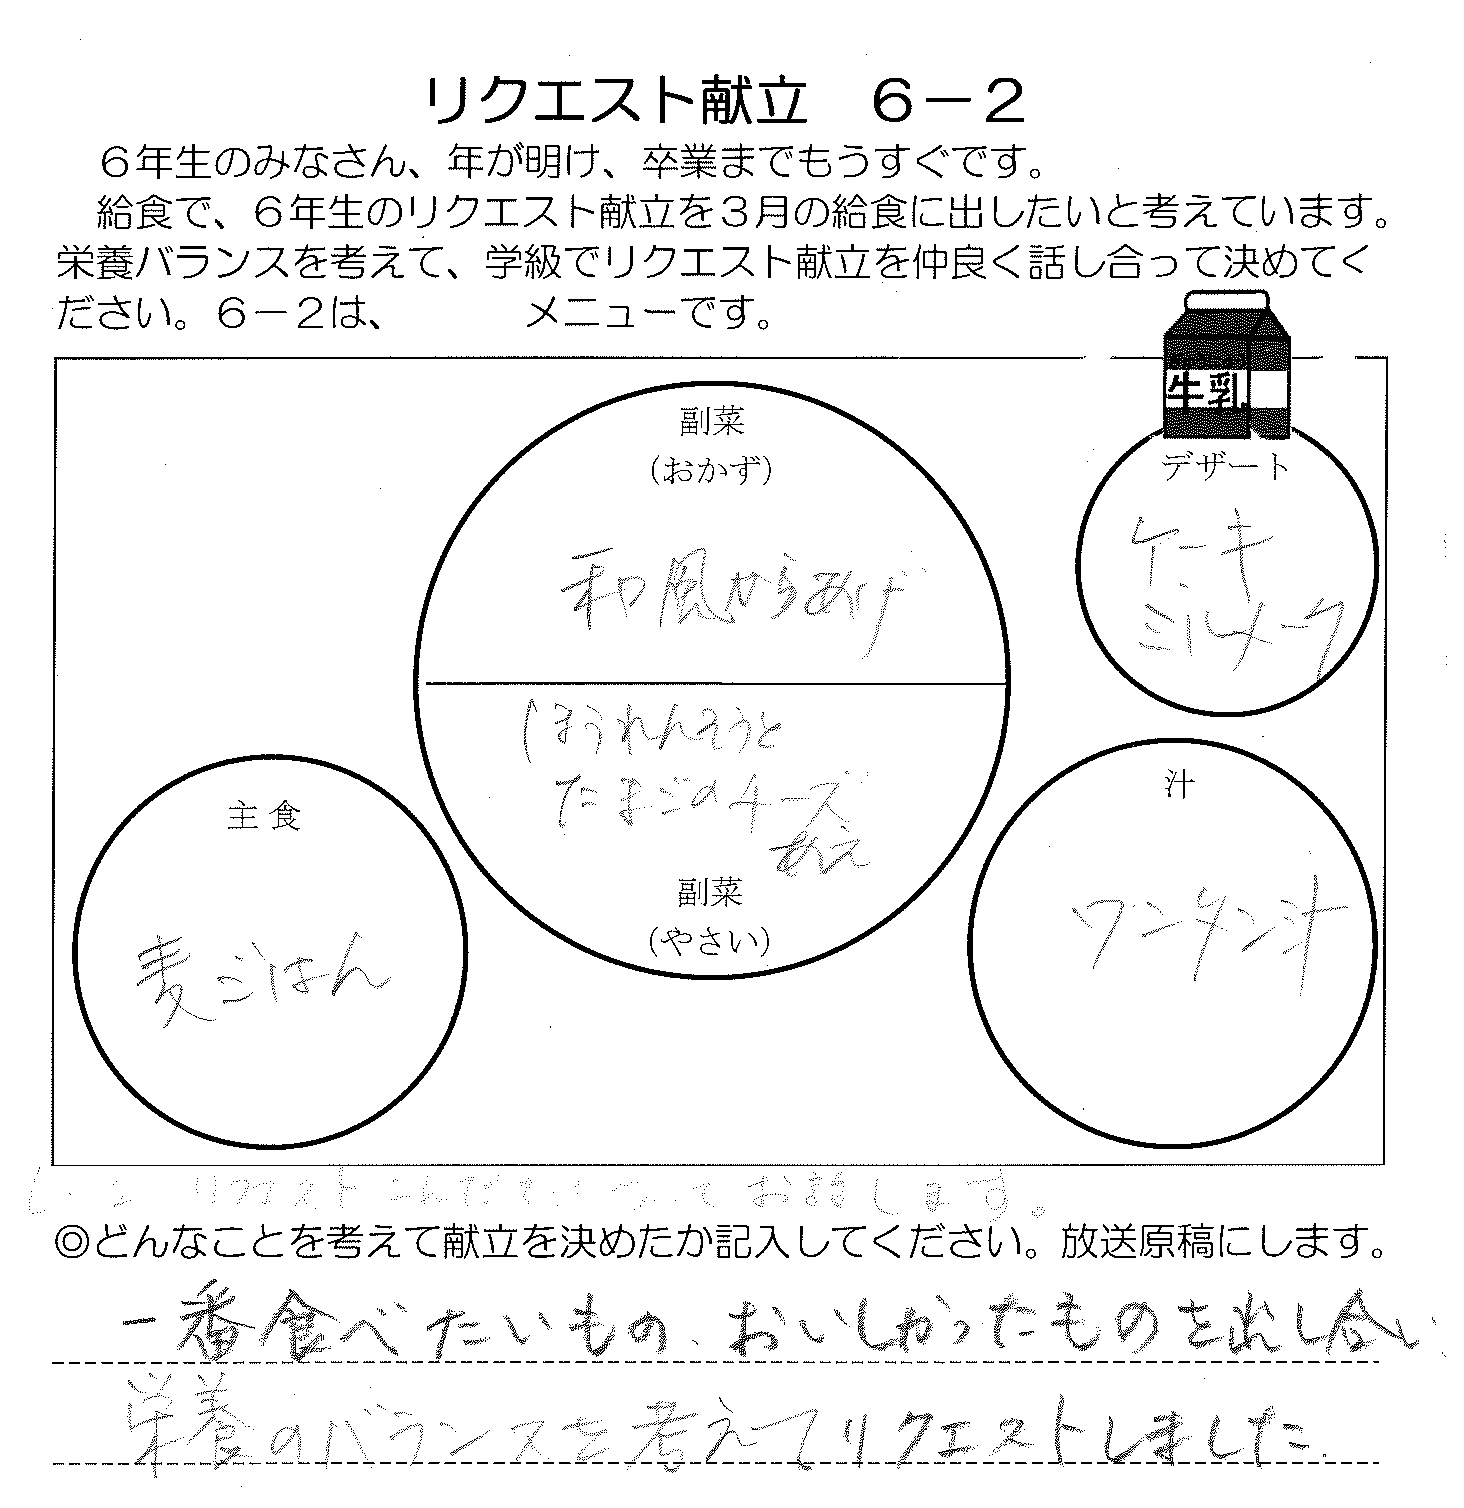 リクエスト献立　６－２
６年生のみなさん、年が明け、卒業までもうすぐです。
給食で、６年生のリクエスト献立を３月の給食に出したいと考えています。
栄養バランスを考えて、学級でリクエスト献立を仲良く話し合って決めてく
ださい。６－２は、　　　メニューです。
牛乳
副菜
（おかず）
和風からあげ
デザート
ケーキ
ミルメーク
ほうれんそうと
たまごのチーズ
あえ
副菜
（やさい）
主食
麦ごはん
汁
ワンタン汁
リクエストこんだて
します。
◎どんなことを考えて献立を決めたか記入してください。放送原稿にします。
一番食べたいもの、おいしかったものを出し合い
栄養のバランスを考えてリクエストしました。